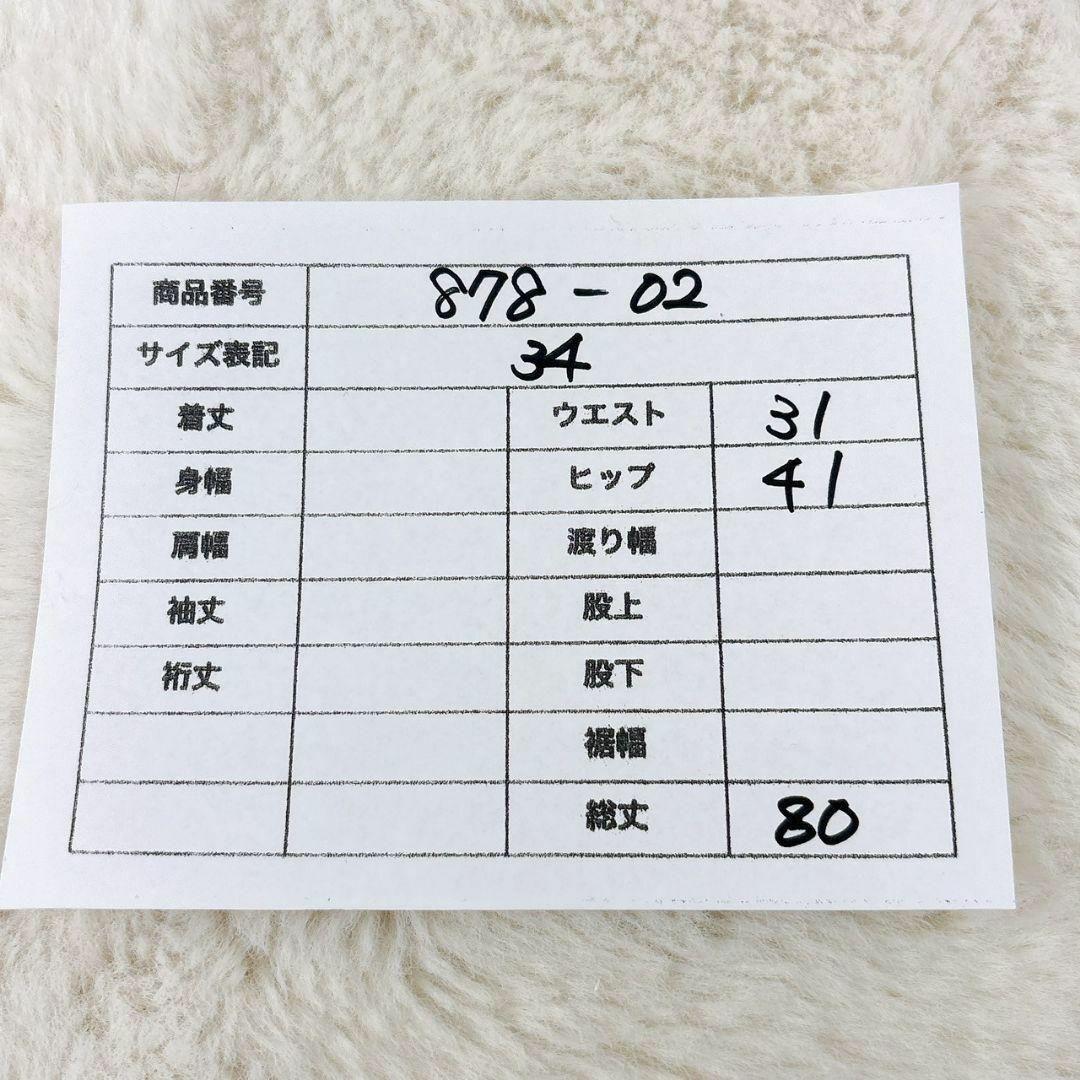 商品番号 878-02
サイズ表記 34
着丈 ウエスト 31
身幅 ヒップ 41
肩幅 渡り幅
袖丈 股上
裄丈 股下
裾幅
総丈 80